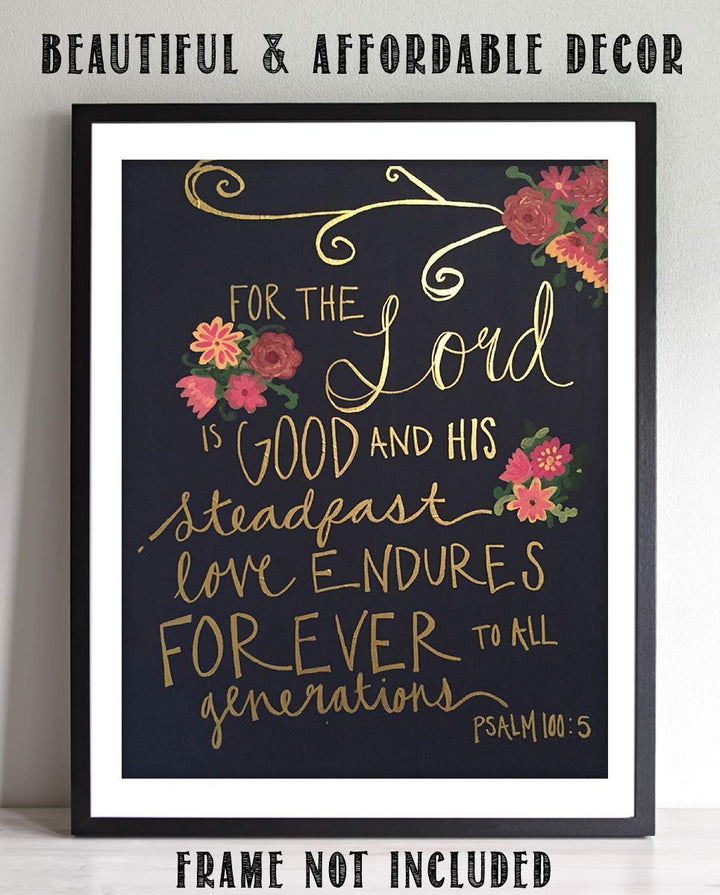 BEAUTIFUL & AFFORDABLE DECOR
FOR THE Lord
IS GOOD AND HIS
steadfast
love ENDURES
FOREVER TO ALL
generations
PSALM 100:5
FRAME NOT INCLUDED